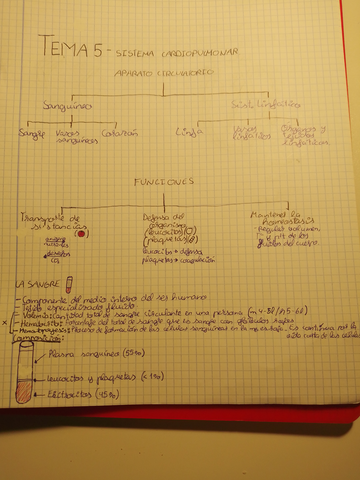 TEMA 5 - SISTEMA CARDIOPULMONAR
APARATO CIRCULATORIO
Sanguíneo
Sist. Linfático
Sangre
Vasos sanguíneos
Corazón
Linfa
Vasos linfáticos
Órganos y tejidos linfáticos
FUNCIONES
Transporte de sustancias
Defensa del organismo
(leucocitos)
(plaquetas)
leucocitos → defensa
plaquetas → coagulación
Mantener la homeostasis
Regular volumen
Tª y pH de los
fluidos del cuerpo.
LA SANGRE
- Componente del medio interno del ser humano
- Tejido especializado fluido
- Volemia: cantidad total de sangre circulante en una persona
- Hematocrito: Porcentaje del total de sangre que es sangre con glóbulos rojos
- Hemopoyesis: Proceso de formación de las células sanguíneas en la
Composición:
Plasma sanguíneo (55%)
Leucocitos y plaquetas (<1%)
Eritrocitos (45%)